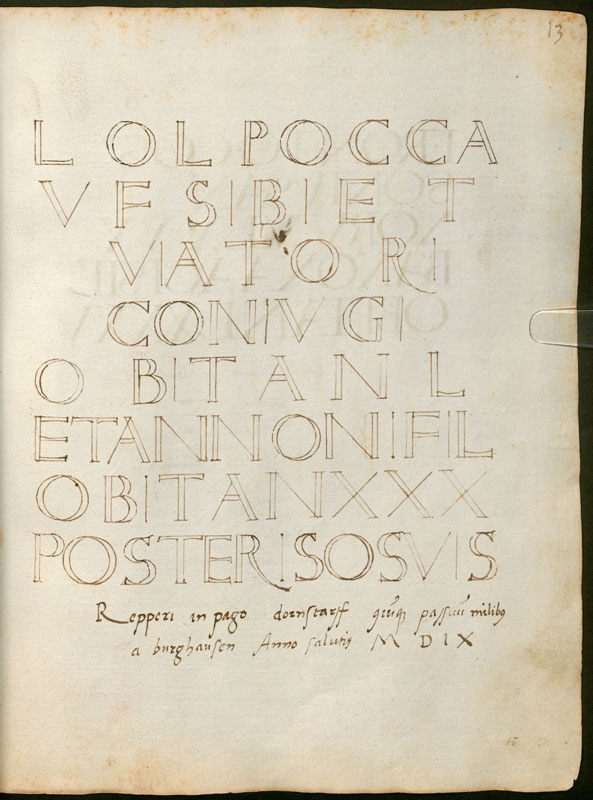 13
L OL POCCA
V F SIBI E T
VIATORI
CONIVGI
O BIT AN L
ETANNONI FIL
OBIT AN XXX
POSTERISOSVIS
Repperi in pago dornstarff quīqȝ passuū milibꝯ
a burghausen Anno salutis M D I X
16